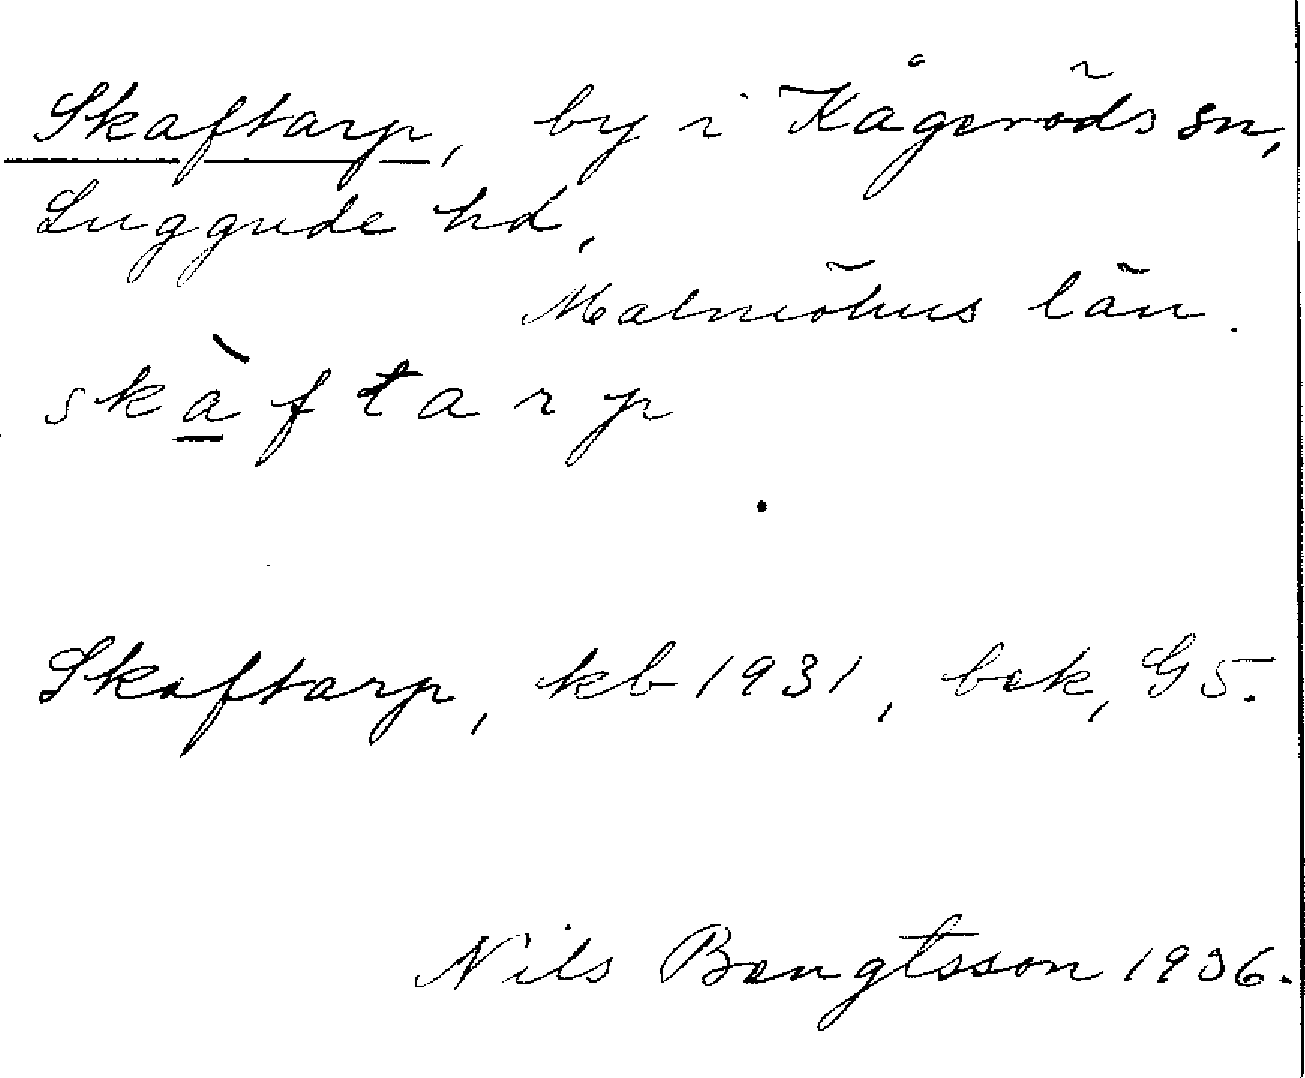 Skaftarp, by i Kågeröds sn,
Luggude hd,
Malmöhus län.
skàftarp
Skaftarp, kb 1931, bek, G5.
Nils Bengtsson 1936.